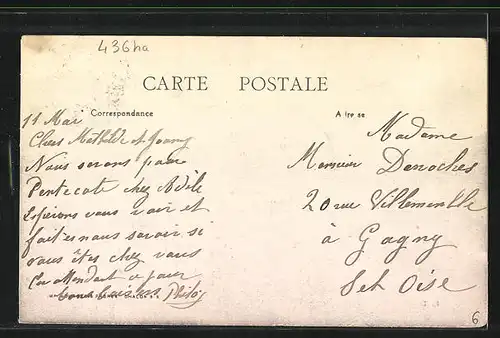 436ha
CARTE POSTALE
Correspondance
11 Mai
Chers Mathilde et
Nous serons pour
Pentecote chez Adèle
Espérons vous voir et
faites nous savoir si
vous êtes chez vous
En attendant ce jour
bons baisers
Madame
Monsieur Desroches
20 rue Villemomble
à Gagny
Set Oise
6